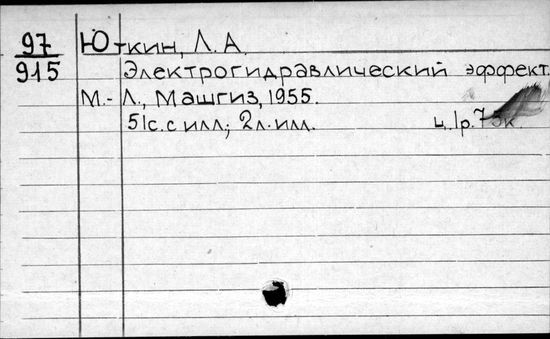 97 Юткин, Л. А.
915 Электрогидравлический эффект.
М.-Л., Машгиз, 1955.
51с. с илл; 2л. илл. ц. 1р. 75к.